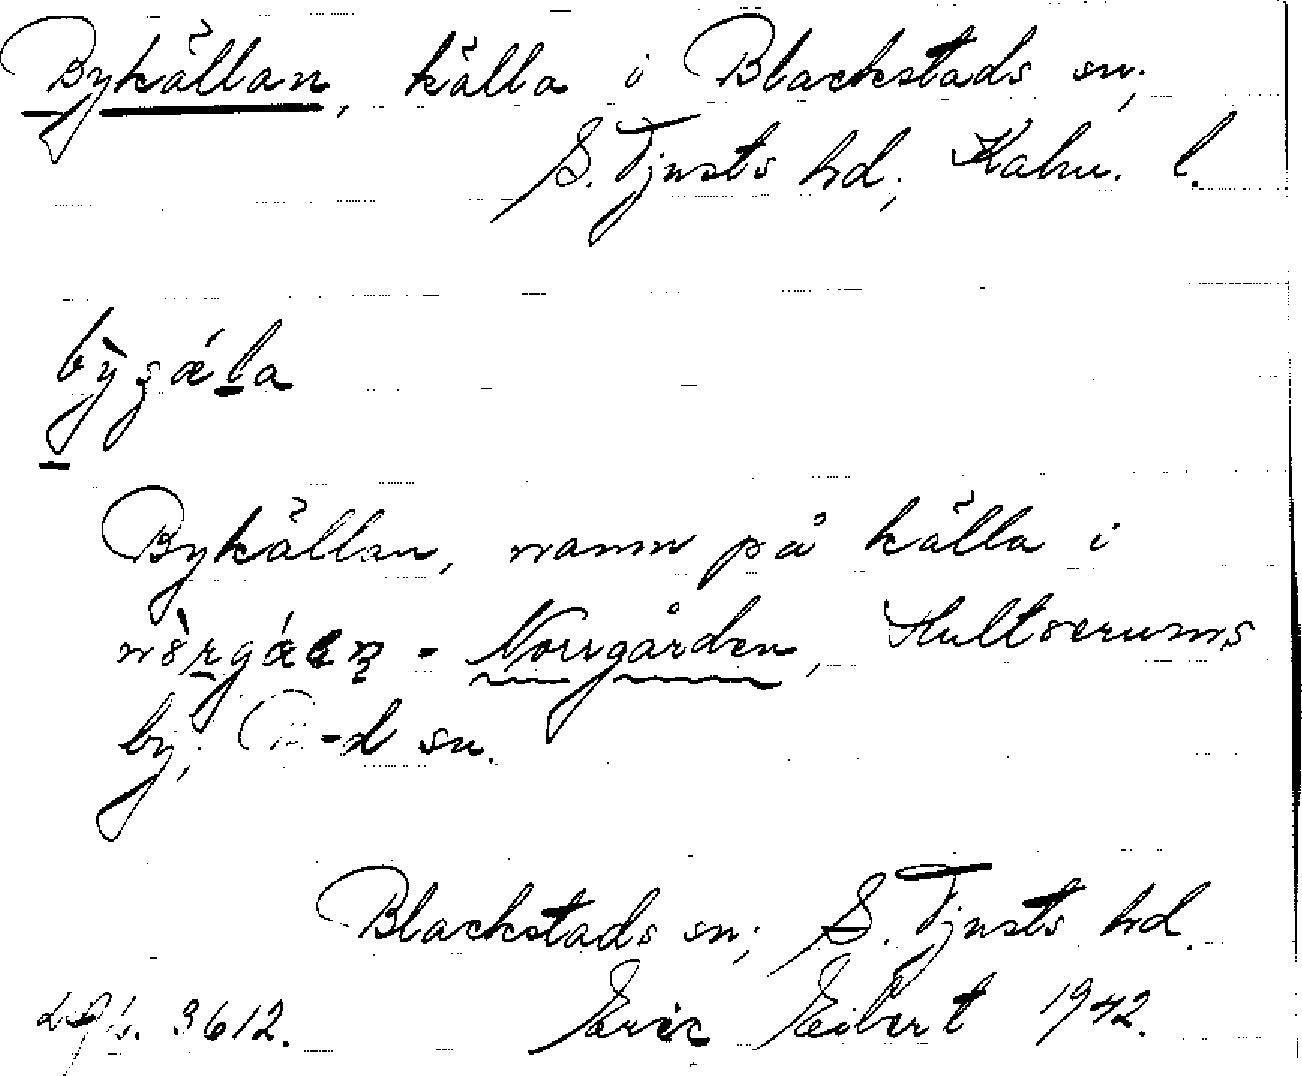 Bykällan, källa i Blackstads sn,
S. Tjusts hd, Kalm. l.
Bykällan, namn på källa i
- Norrgården, Hultserums
by, B-d sn.
Blackstads sn, S. Tjusts hd.
3612. Eric Eibert 1942.